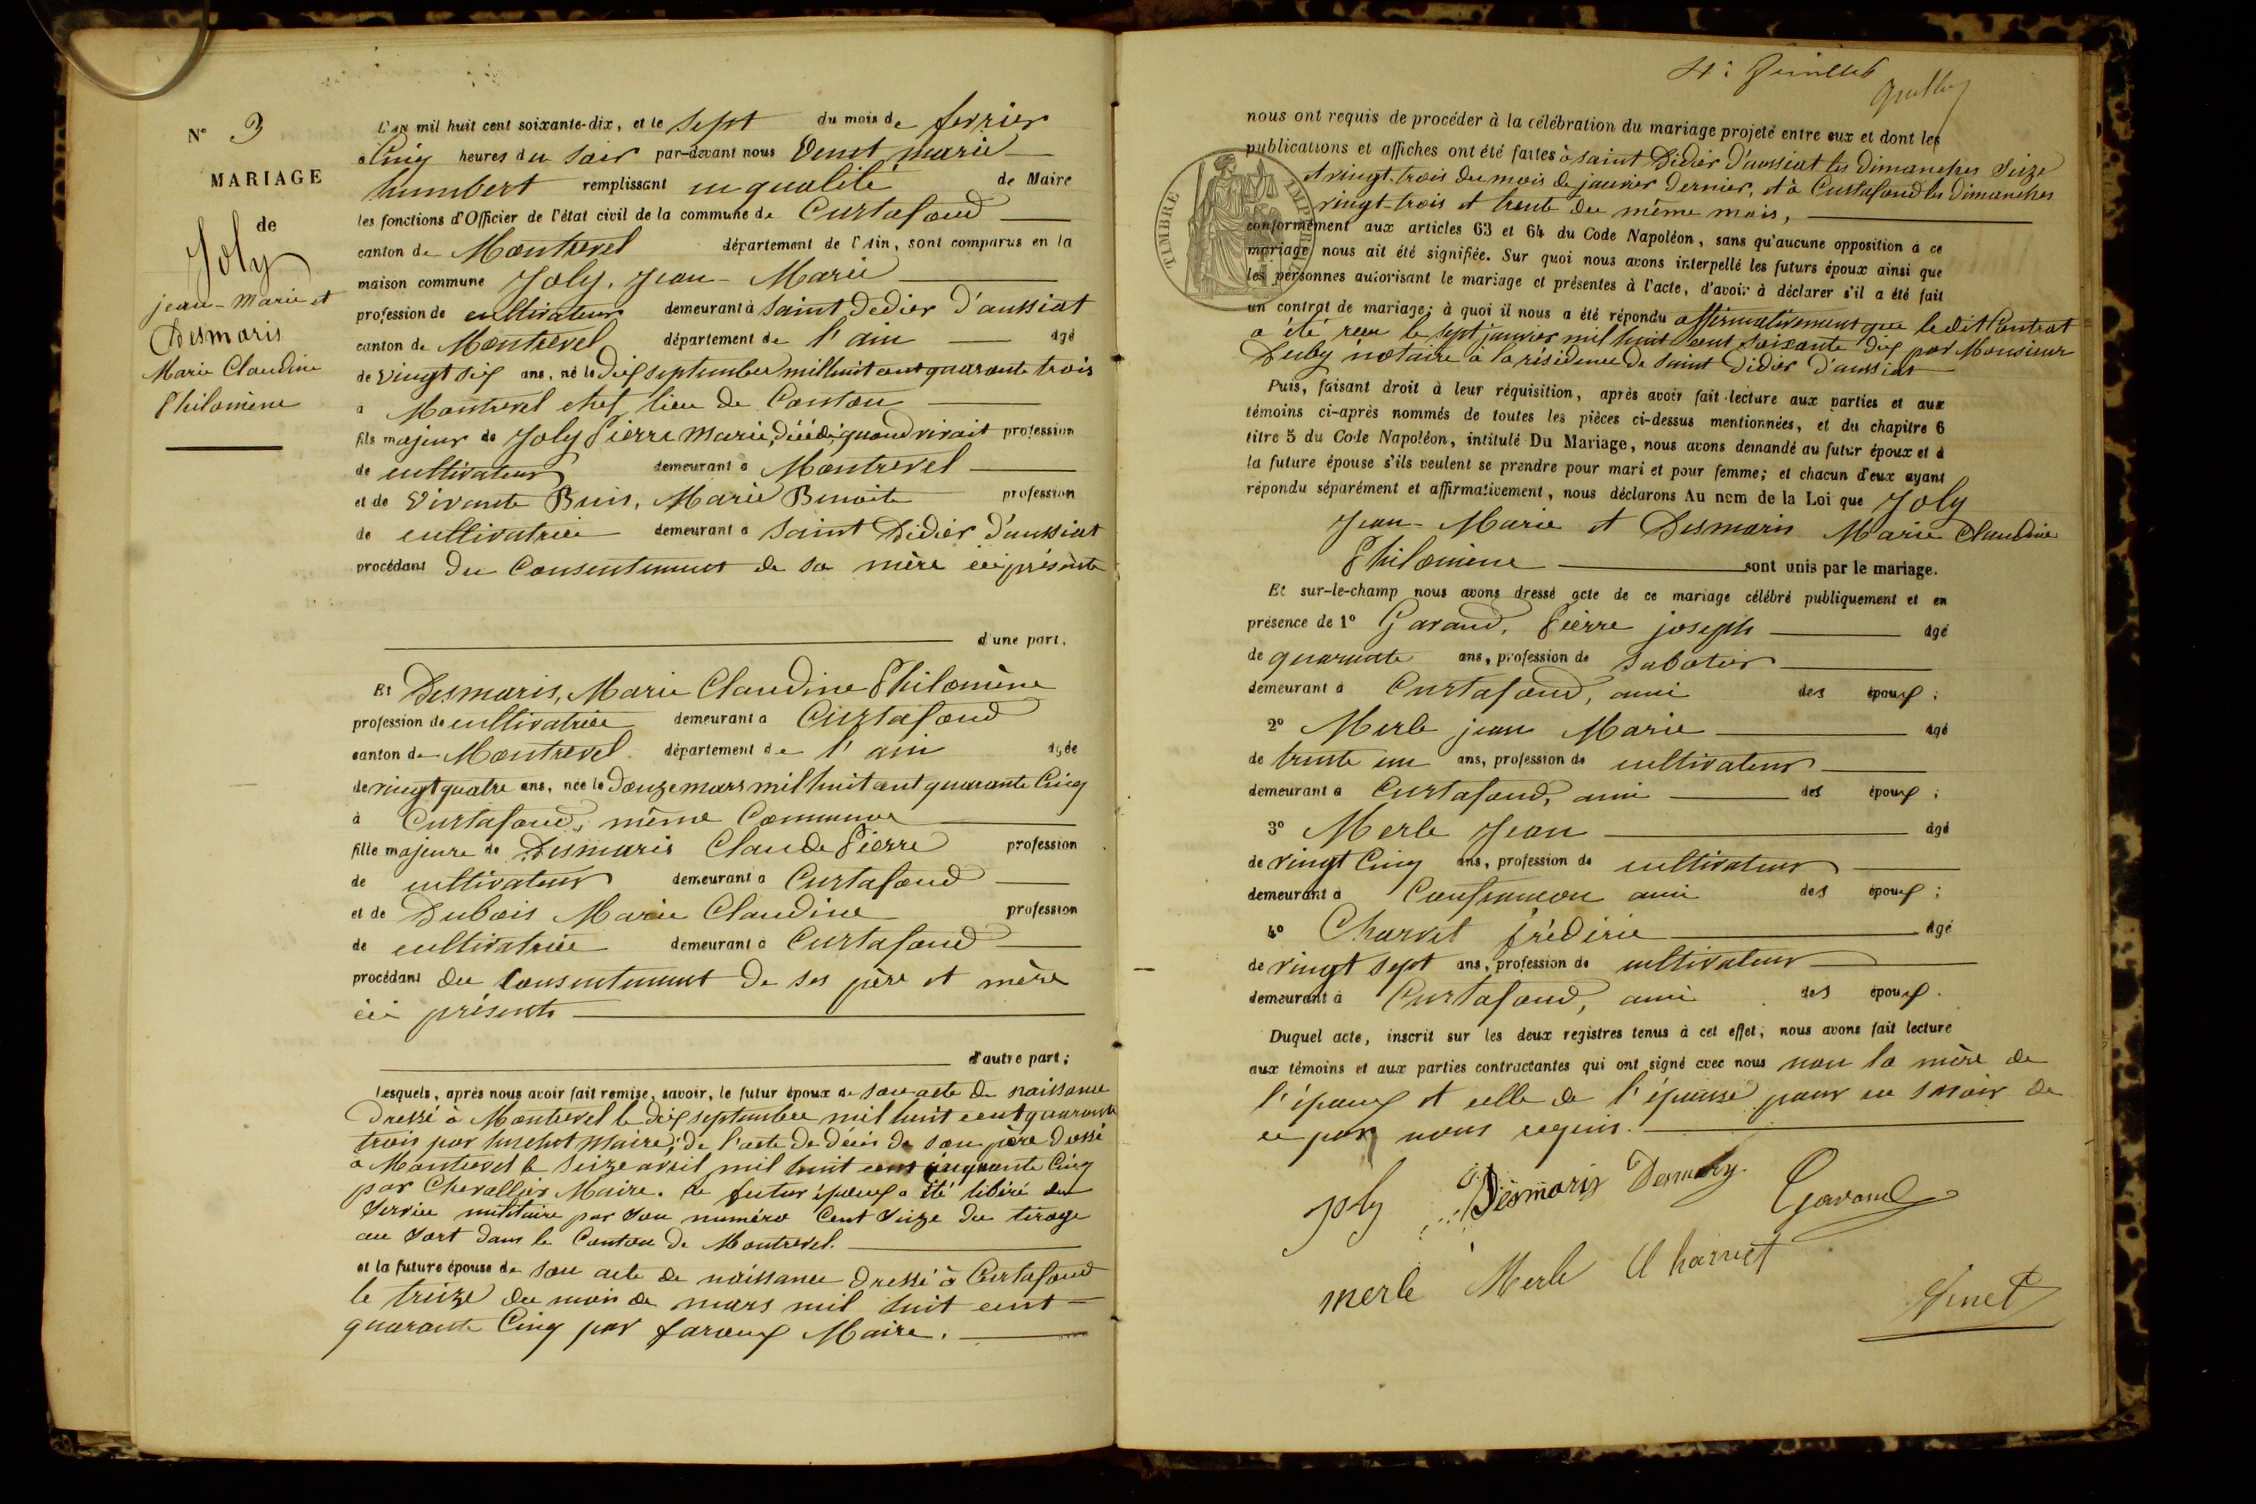 N° 3
MARIAGE
de
Joly
jean-Marie et
Desmaris
Marie Claudine
Philomène
L'an mil huit cent soixante-dix, et le sept du mois de fevrier
a Cinq heures du soir par-devant nous Venet marie
humbert remplissant en qualité de Maire
les fonctions d'Officier de l'état civil de la commune de Curtafond
canton de Montrevel département de l'Ain, sont comparus en la
maison commune Joly, Jean-Marie
profession de cultivateur demeurant à saint Dedier d'aussiat
canton de Montrevel département de l'ain agé
de vingt six ans, né le dix septembre mil huit cent quarante trois
a Montrevel chef lieu de Canton
fils majeur de Joly Pierre Marie, décédé, quand vivait profession
de cultivateur demeurant a Montrevel
et de vivante Buis, Marie Benoite profession
de cultivatrice demeurant a saint Didier d'aussiat
procédant du Consentement de sa mère ici présente
d'une part,
Et Desmaris, Marie Claudine Philomène
profession de cultivatrice demeurant a Curtafond
canton de Montrevel département de l'ain agée
de vingt quatre ans, née le Douze mars mil huit cent quarante Cinq
à Curtafond, même Commune
fille majeure de Desmaris Claude Pierre profession
de cultivateur demeurant a Curtafond
et de Dubois Marie Claudine profession
de cultivatrice demeurant à Curtafond
procédant du Consentement de ses père et mère
ici présents
d'autre part;
Lesquels, après nous avoir fait remise, savoir, le futur époux de son acte de naissance
Dressé à Montrevel le dix septembre mil huit cent quarante
trois par Maire; de l'acte de décès de son père dressé
a Montrevel le seize avril mil huit cent cinquante Cinq
par Chevallier Maire. le futur époux a été libéré du
Service militaire par son numéro Cent seize du tirage
au sort dans le Canton de Montrevel.
et la future épouse de son acte de naissance dressé à Curtafond
le treize du mois de mars mil huit cent
quarante Cinq par faroux Maire.
nous ont requis de procéder à la célébration du mariage projeté entre eux et dont les
publications et affiches ont été faites à saint Didier d'aussiat les dimanches Seize
et vingt-trois du mois de janvier dernier, et à Curtafond les Dimanches
vingt-trois et trente du même mois,
conformément aux articles 63 et 64 du Code Napoléon, sans qu'aucune opposition à ce
mariage nous ait été signifiée. Sur quoi nous avons interpellé les futurs époux ainsi que
les personnes autorisant le mariage et présentes à l'acte, d'avoir à déclarer s'il a été fait
un contrat de mariage; à quoi il nous a été répondu affirmativement que ledit Contrat
a été reçu le sept janvier mil huit cent soixante dix par Monsieur
Duby notaire a la résidence de saint Didier d'aussiat
Puis, faisant droit à leur réquisition, après avoir fait lecture aux parties et aux
témoins ci-après nommés de toutes les pièces ci-dessus mentionnées, et du chapitre 6
titre 5 du Code Napoléon, intitulé Du Mariage, nous avons demandé au futur époux et à
la future épouse s'ils veulent se prendre pour mari et pour femme; et chacun d'eux ayant
répondu séparément et affirmativement, nous déclarons Au nom de la Loi que Joly
Jean-Marie et Desmaris Marie Claudine
Philomène sont unis par le mariage.
Et sur-le-champ nous avons dressé acte de ce mariage célébré publiquement et en
présence de 1° Gavand, Pierre joseph agé
de quarante ans, profession de sabotier
demeurant à Curtafond, ami des époux;
2° Merle jean Marie agé
de trente un ans, profession de cultivateur
demeurant a Curtafond, ami des époux;
3° Merle Jean agé
de vingt Cinq ans, profession de cultivateur
demeurant à Confrançon ami des époux;
4° Charvet frédéric agé
de vingt sept ans, profession de cultivateur
demeurant à Curtafond, ami des époux.
Duquel acte, inscrit sur les deux registres tenus à cet effet, nous avons fait lecture
aux témoins et aux parties contractantes qui ont signé avec nous non la mère de
l'époux et celle de l'épouse pour ne savoir de
ce par nous requis.
Joly Desmaris Desmary. Gavand
merle Merle Charvet
Venet
TIMBRE